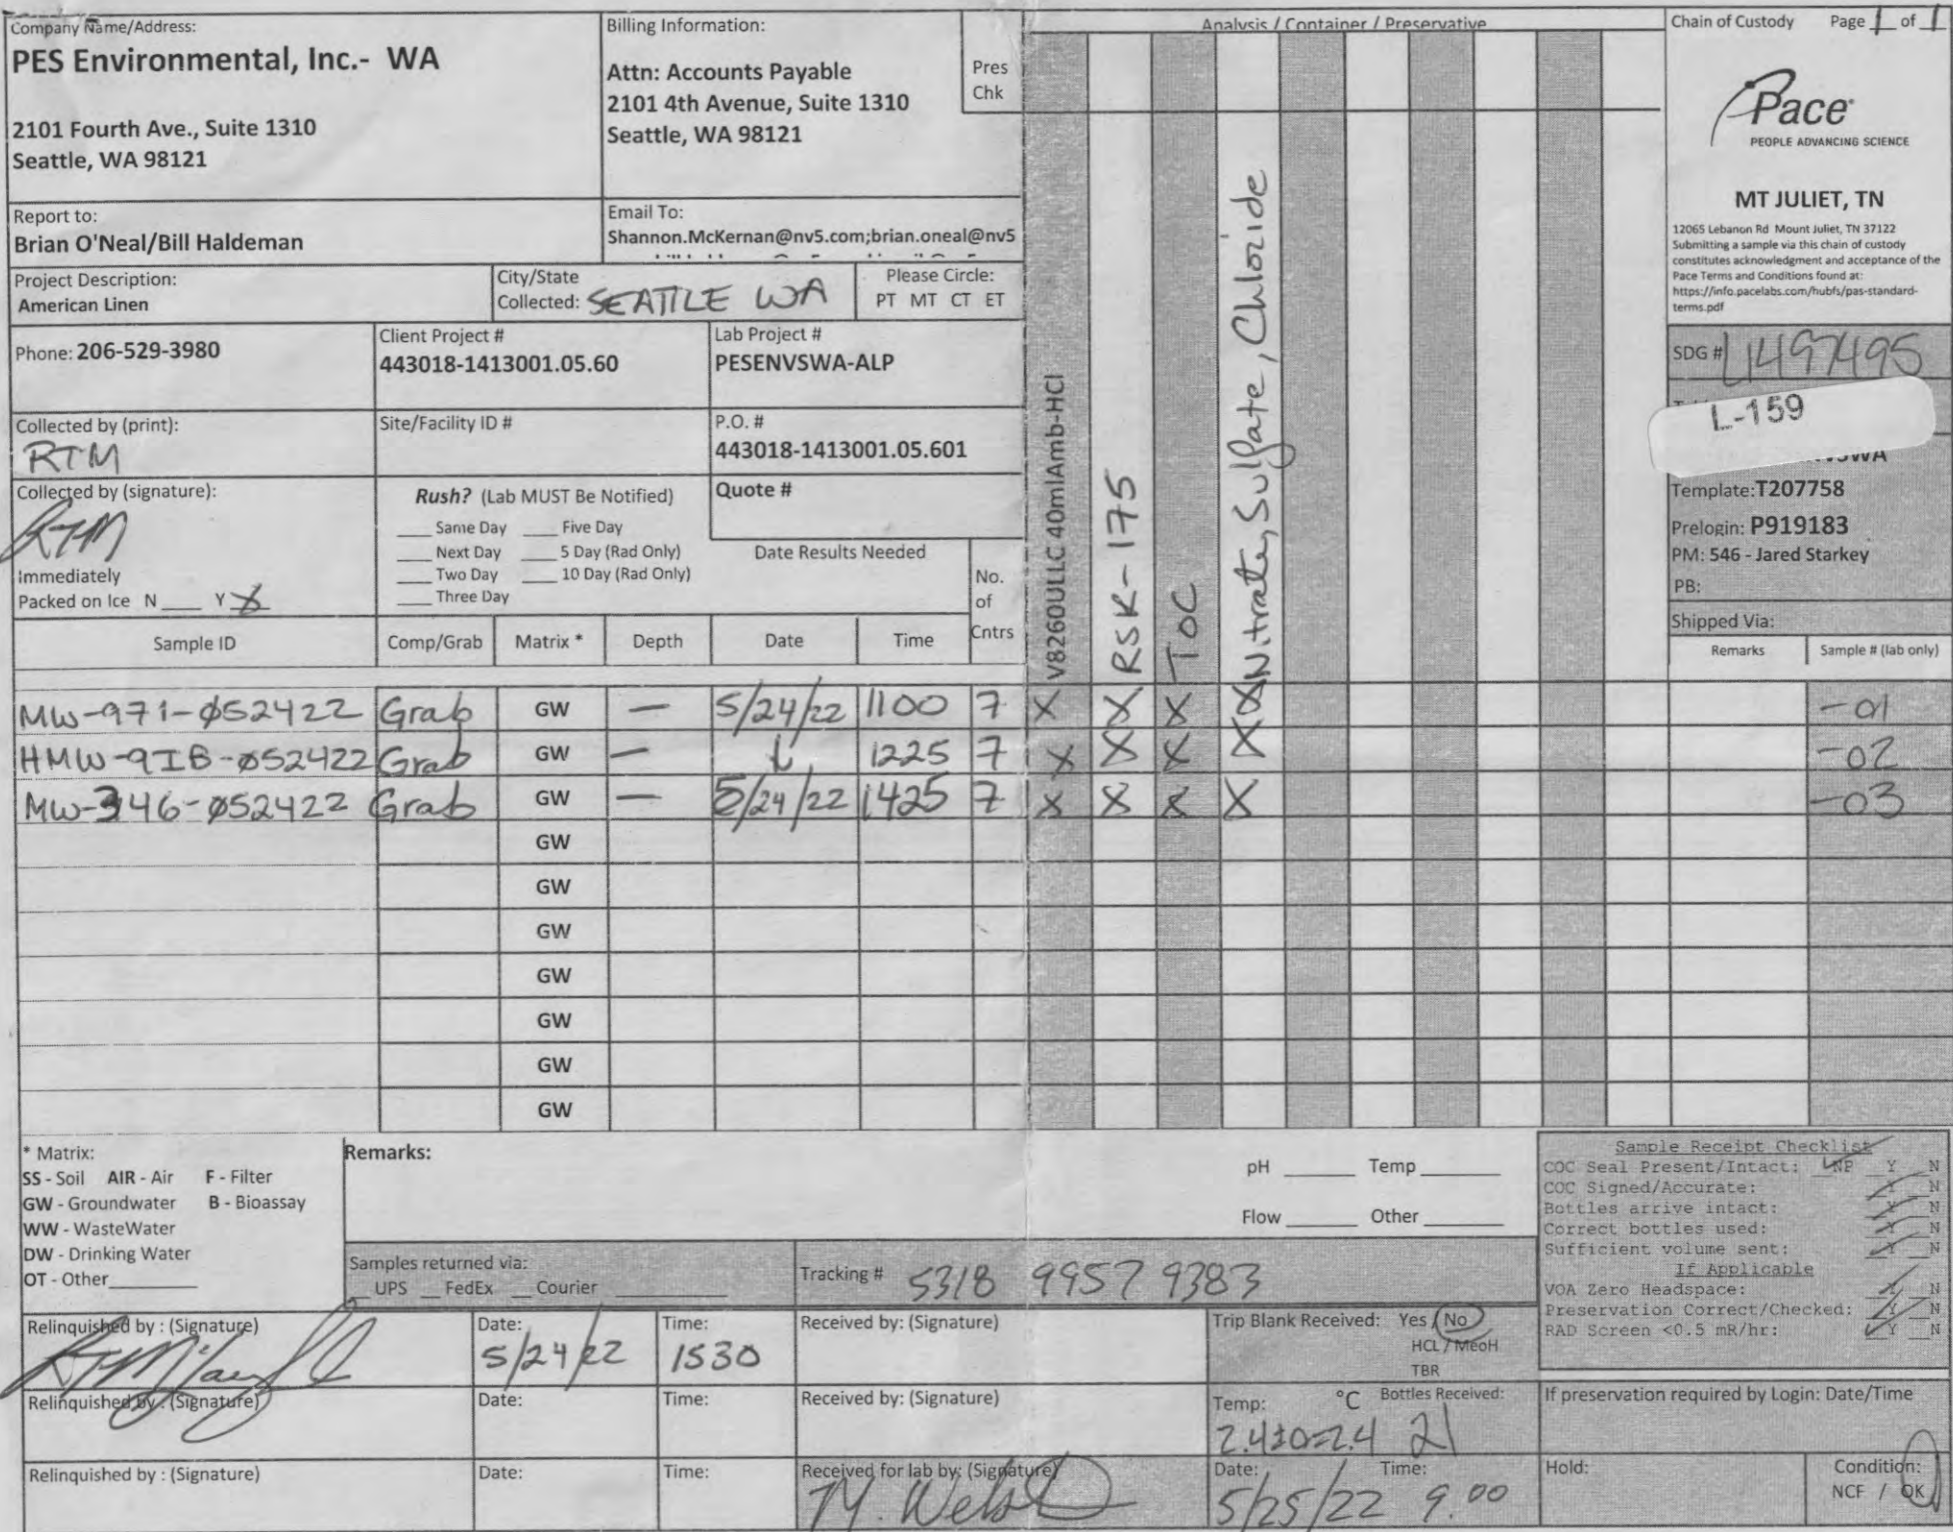 Company Name/Address:
PES Environmental, Inc.- WA
2101 Fourth Ave., Suite 1310
Seattle, WA 98121
Billing Information:
Attn: Accounts Payable
2101 4th Avenue, Suite 1310
Seattle, WA 98121
Pres
Chk
Analysis / Container / Preservative
Chain of Custody Page 1 of 1
Pace
PEOPLE ADVANCING SCIENCE
MT JULIET, TN
12065 Lebanon Rd Mount Juliet, TN 37122
Submitting a sample via this chain of custody
constitutes acknowledgment and acceptance of the
Pace Terms and Conditions found at:
https://info.pacelabs.com/hubfs/pas-standard-
terms.pdf
Report to:
Brian O'Neal/Bill Haldeman
Email To:
Shannon.McKernan@nv5.com;brian.oneal@nv5
Project Description:
American Linen
City/State
Collected: SEATTLE WA
Please Circle:
PT MT CT ET
Phone: 206-529-3980
Client Project #
443018-1413001.05.60
Lab Project #
PESENVSWA-ALP
SDG # L1497495
L-159
Collected by (print):
RTM
Site/Facility ID #
P.O. #
443018-1413001.05.601
Collected by (signature):
RTM
Rush? (Lab MUST Be Notified)
Same Day Five Day
Next Day 5 Day (Rad Only)
Two Day 10 Day (Rad Only)
Three Day
Quote #
Date Results Needed
Immediately
Packed on Ice N Y X
No.
of
Cntrs
V8260ULLC 40mlAmb-HCl
RSK-175
TOC
Nitrate, Sulfate, Chloride
Template: T207758
Prelogin: P919183
PM: 546 - Jared Starkey
PB:
Shipped Via:
Sample ID Comp/Grab Matrix * Depth Date Time Remarks Sample # (lab only)
MW-971-Ø52422 Grab GW — 5/24/22 1100 7 X X X X -01
HMW-9IB-Ø52422 Grab GW — ↓ 1225 7 X X X X -02
MW-346-Ø52422 Grab GW — 5/24/22 1425 7 X X X X -03
GW
GW
GW
GW
GW
GW
GW
* Matrix:
SS - Soil AIR - Air F - Filter
GW - Groundwater B - Bioassay
WW - WasteWater
DW - Drinking Water
OT - Other
Remarks:
pH Temp
Flow Other
Samples returned via:
UPS FedEx Courier
Tracking # 5318 9957 9383
Sample Receipt Checklist
COC Seal Present/Intact: NP Y N
COC Signed/Accurate: Y N
Bottles arrive intact: Y N
Correct bottles used: Y N
Sufficient volume sent: Y N
If Applicable
VOA Zero Headspace: Y N
Preservation Correct/Checked: Y N
RAD Screen <0.5 mR/hr: Y N
Relinquished by : (Signature)
Date:
5/24/22
Time:
1530
Received by: (Signature)
Trip Blank Received: Yes / No
HCL / MeoH
TBR
Relinquished by : (Signature)
Date:
Time:
Received by: (Signature)
Temp: °C Bottles Received:
2.4±0=2.4 21
If preservation required by Login: Date/Time
Relinquished by : (Signature)
Date:
Time:
Received for lab by: (Signature)
Date: Time:
5/25/22 9:00
Hold:
Condition:
NCF / OK